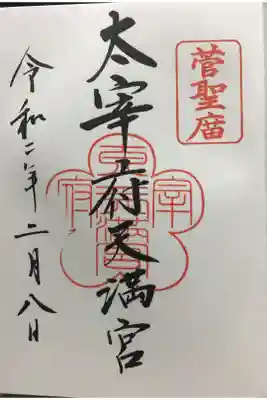 菅聖庿
太宰府天満宮
令和二年二月八日